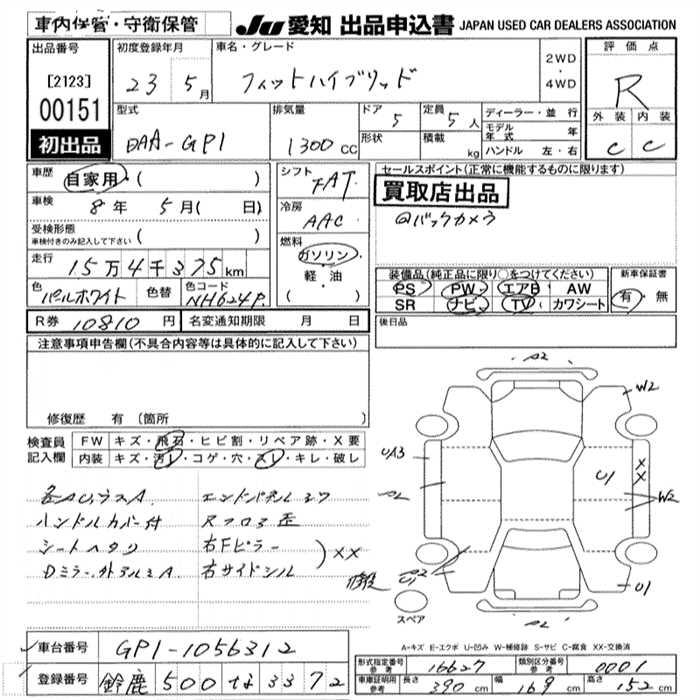 車内保管・守衛保管
JU 愛知 出品申込書 JAPAN USED CAR DEALERS ASSOCIATION
出品番号
[2123]
00151
初出品
初度登録年月
23 5月
車名・グレード
フィットハイブリッド
2WD
・
4WD
評価点
R
外装 内装
C C
型式
DAA-GP1
排気量
1300cc
ドア 5
形状
定員 5人
積載 kg
ディーラー・並行
モデル年式 年
ハンドル 左・右
車歴 自家用・( )
車検 8年 5月( 日)
受検形態
車検付きのみ記入して下さい ( )
走行 15万4千375km
色 パールホワイト 色替 色コード NH624P
シフト FAT
冷房 AAC
燃料
ガソリン
・
軽・油
( )
セールスポイント(正常に機能するものに限ります)
買取店出品
@バックカメラ
装備品(純正品に限り○をつけてください)
PS PW エアB AW
SR ナビ TV カワシート
新車保証書
有・無
R券 10810円 名変通知期限 月 日
後日品
注意事項申告欄(不具合内容等は具体的に記入して下さい)
修復歴 有 (箇所
検査員記入欄
FW キズ・飛石・ヒビ割・リペア跡・X要
内装 キズ・汚レ・コゲ・穴・スレ・キレ・破レ
各AUうスA エンドパネル
ハンドルカバー付 スフロア歪
シートヘタリ 右Fピラー
Dミラー外アルミA 右サイドシル
XX
A2
W2
UA3
A2
U1
XX
W2
A2
U1
U1
A2
スペア
A-キズ E-エクボ U-凹み W-補修跡 S-サビ C-腐食 XX-交換済
車台番号 GP1-1056312
登録番号 鈴鹿 500 な 3372
形式指定番号 参考 16627 類別区分番号 参考 0001
車庫証明用 参考 長さ 390cm 幅 169cm 高さ 152cm